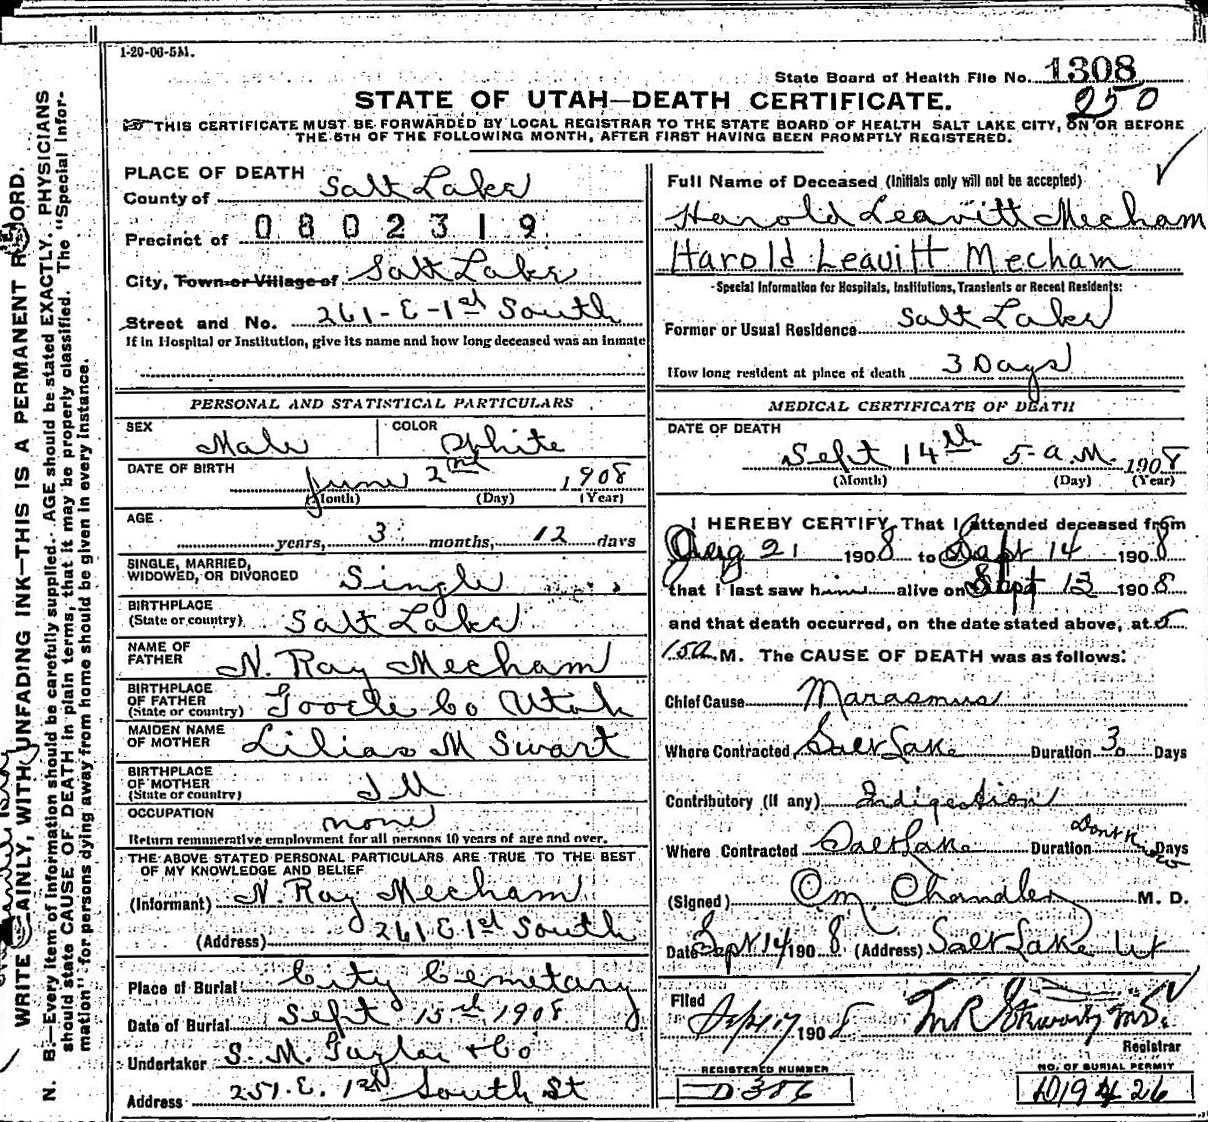 1-20-06-5M.
State Board of Health File No. 1308
250
STATE OF UTAH—DEATH CERTIFICATE.
THIS CERTIFICATE MUST BE FORWARDED BY LOCAL REGISTRAR TO THE STATE BOARD OF HEALTH SALT LAKE CITY, ON OR BEFORE
THE 5TH OF THE FOLLOWING MONTH, AFTER FIRST HAVING BEEN PROMPTLY REGISTERED.
PLACE OF DEATH
County of Salt Lake
Precinct of 0802319
City, Town or Village of Salt Lake
Street and No. 261-E-1st South
If in Hospital or Institution, give its name and how long deceased was an inmate
PERSONAL AND STATISTICAL PARTICULARS
SEX Male COLOR White
DATE OF BIRTH June 2nd 1908
(Month) (Day) (Year)
AGE years, 3 months, 12 days
SINGLE, MARRIED,
WIDOWED, OR DIVORCED Single
BIRTHPLACE
(State or country) Salt Lake
NAME OF
FATHER N. Ray Mecham
BIRTHPLACE
OF FATHER
(State or country) Tooele Co Utah
MAIDEN NAME
OF MOTHER Lilias M Swart
BIRTHPLACE
OF MOTHER
(State or country) Ill
OCCUPATION none
Return remunerative employment for all persons 10 years of age and over.
THE ABOVE STATED PERSONAL PARTICULARS ARE TRUE TO THE BEST
OF MY KNOWLEDGE AND BELIEF
(Informant) N. Ray Mecham
(Address) 261 E 1st South
Place of Burial City Cemetary
Date of Burial Sept 15th 1908
Undertaker S. M. Taylor & Co
Address 251. E. 1st South St
Full Name of Deceased (Initials only will not be accepted)
Harold Leavitt Mecham
Harold Leavitt Mecham
Special Information for Hospitals, Institutions, Transients or Recent Residents:
Former or Usual Residence Salt Lake
How long resident at place of death 3 Days
MEDICAL CERTIFICATE OF DEATH
DATE OF DEATH
Sept 14th 5-a.M. 1908
(Month) (Day) (Year)
I HEREBY CERTIFY, That I attended deceased from
Aug 21 1908 to Sept 14 1908
that I last saw him alive on Sept 13 1908
and that death occurred, on the date stated above, at 5
15a M. The CAUSE OF DEATH was as follows:
Chief Cause Marasmus
Where Contracted Salt Lake Duration 30 Days
Contributory (If any) Indigestion
Where Contracted Salt Lake Duration Dont Know Days
(Signed) Chandler M. D.
Date Sept 14/1908 (Address) Salt Lake Ut
Filed Sept 17 1908
Registrar
REGISTERED NUMBER
D386
NO. OF BURIAL PERMIT
WRITE PLAINLY, WITH UNFADING INK—THIS IS A PERMANENT RECORD.
N. B.—Every item of information should be carefully supplied. AGE should be stated EXACTLY. PHYSICIANS
should state CAUSE OF DEATH in plain terms, that it may be properly classified. The "Special Infor-
mation" for persons dying away from home should be given in every instance.